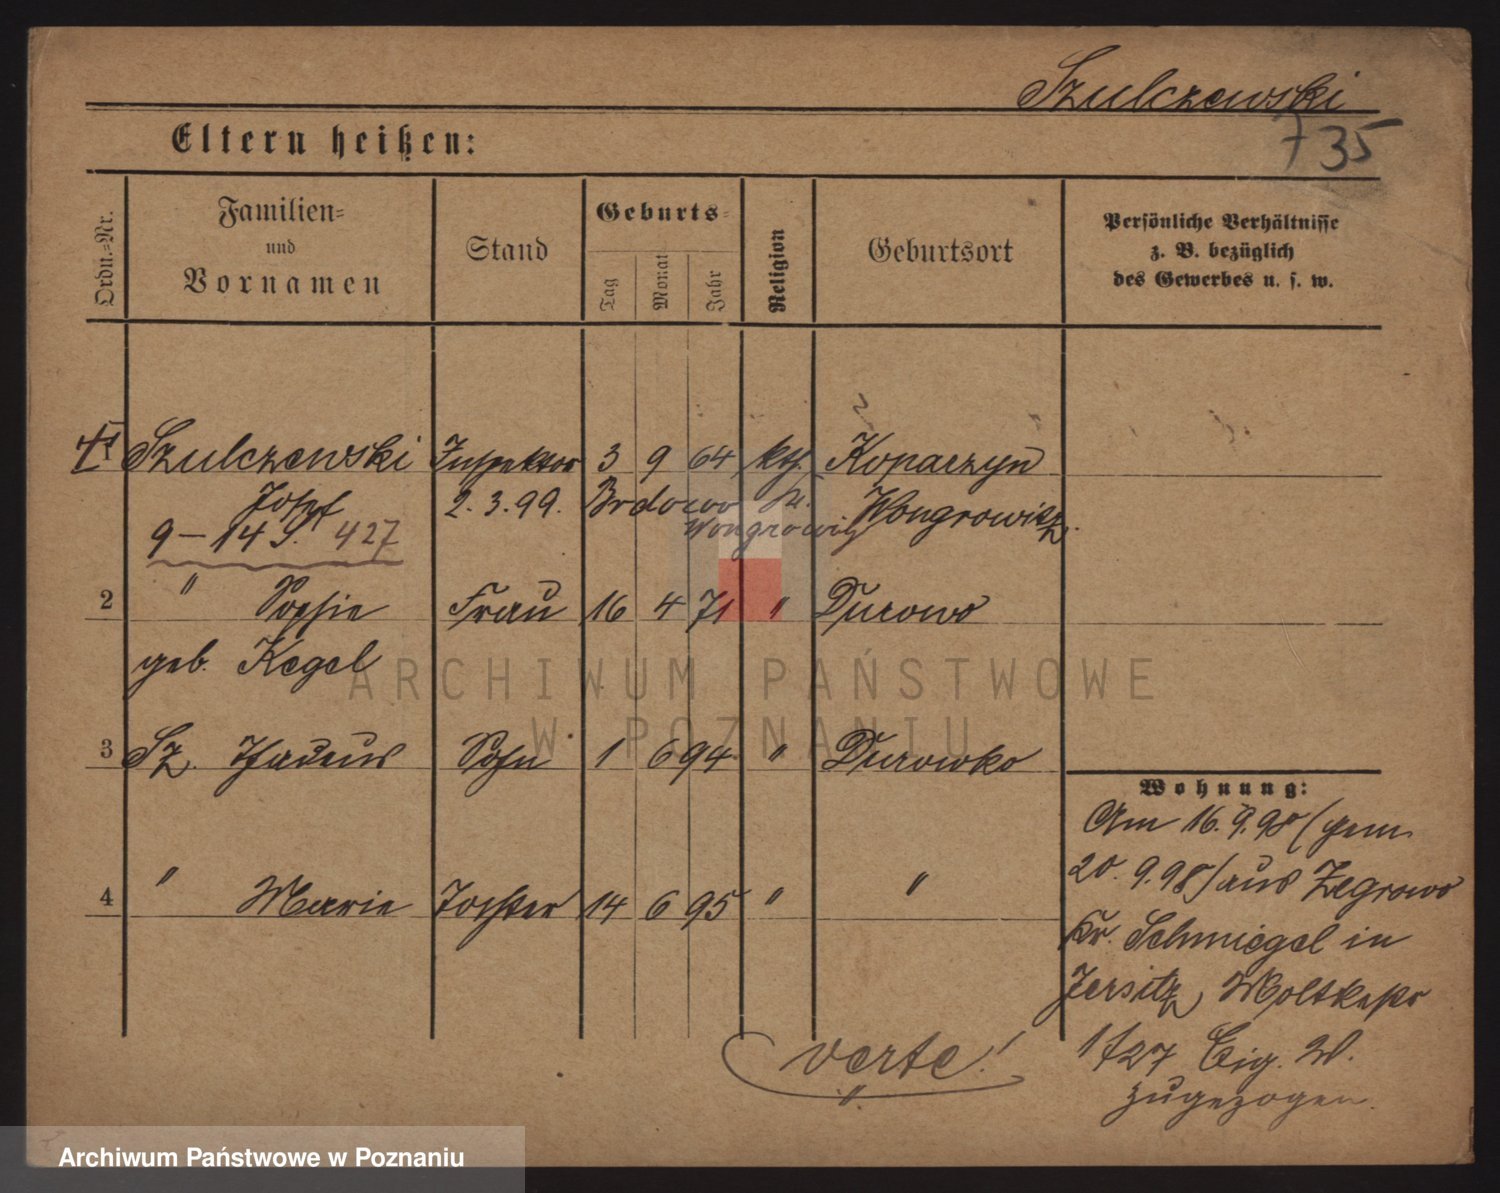 Szulczewski
735
Eltern heißen:
Ordn.=Nr.
Familien=
und
Vornamen
Stand
Geburts=
Tag
Monat
Jahr
Religion
Geburtsort
Persönliche Verhältnisse
z. B. bezüglich
des Gewerbes u. s. w.
1 Szulczewski Inspektor 3 9 64 kth. Kopaszyn
Josef 2.3.99. Brdowo Kr. Wongrowitz.
Wongrowitz
9 – 14 S. 427
2 " Sophie Frau 16 4 71 " Durowo
geb. Kegel
3 Sz. Thadeus Sohn 1 6 94 " Durowko
4 " Marie Tochter 14 6 95 " "
Wohnung:
Am 16.9.98 (gem.
20.9.98) aus Zegrowo
Kr. Schmiegel in
Jersitz, Moltkestr
Eig. W.
zugezogen.
verte!
ARCHIWUM PAŃSTWOWE
W POZNANIU
Archiwum Państwowe w Poznaniu